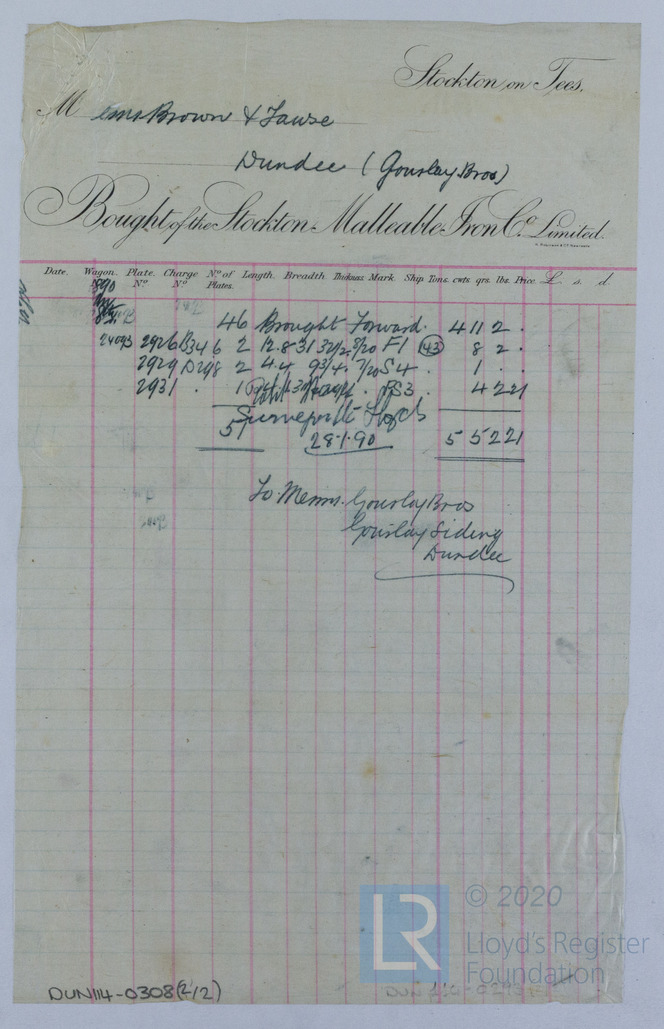 Stockton on Tees.
Messrs Brown &
Dundee (Gourlay Bros)
Bought of the Stockton Malleable Iron Co. Limited.
Date. Wagon. No Plate. No Charge No No of Plates. Length. Breadth Thickness Mark. Ship Tons. cwts. qrs. lbs. Price. £ s. d.
46 Brought Forward. 4 11 2 .
24093 2926 B346 2 12.8 31 8/20 F1 143 8 2 .
2929 D298 2 4.4 93/4 7/20 S4 . 1 . .
2931 . 1 S3 . 4 2 21
51
28.1.90 5 5 2 21
To Messrs. Gourlay Bros
Gourlay Siding
Dundee
DUN114-0308(2/2)
© 2020
LR
Lloyd's Register
Foundation